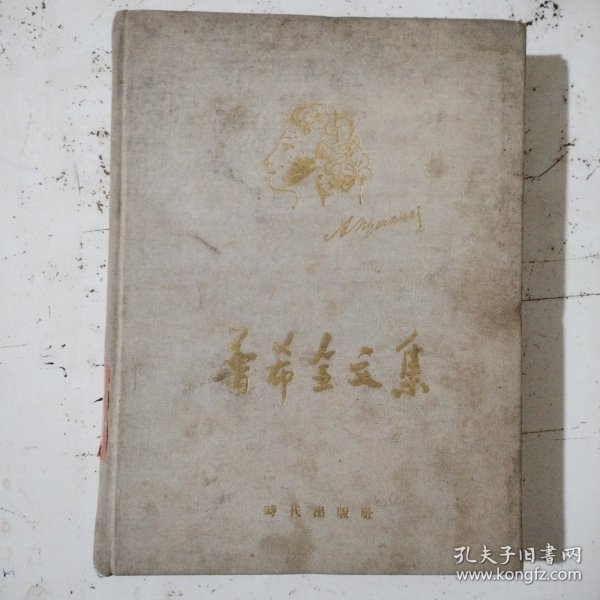 А Пушкин
普希金文集
時代出版社
孔夫子旧書网
www.kongfz.com